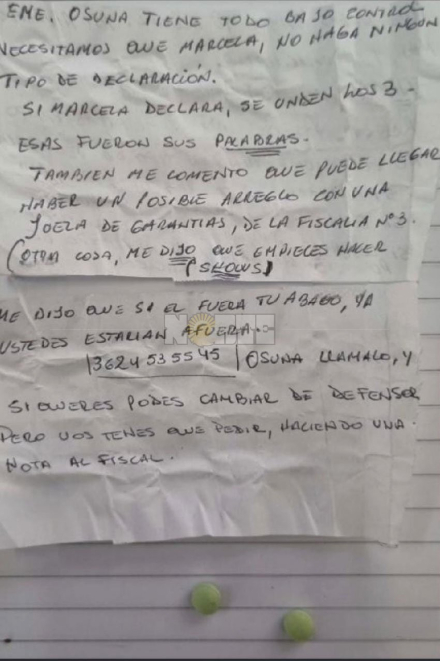 EME. OSUNA TIENE TODO BAJO CONTROL
NECESITAMOS QUE MARCELA, NO HAGA NINGUN
TIPO DE DECLARACIÓN.
SI MARCELA DECLARA, SE UNDEN LOS 3 -
ESAS FUERON SUS PALABRAS -
TAMBIEN ME COMENTO QUE PUEDE LLEGAR
HABER UN POSIBLE ARREGLO CON UNA
JUEZA DE GARANTIAS, DE LA FISCALIA Nº3.
(OTRA COSA, ME DIJO QUE EMPIECES HACER
(SHOWS)
ME DIJO QUE SI EL FUERA TU ABAGO, YA
USTEDES ESTARIAN AFUERA -
|3624535545| OSUNA LLAMALO, Y
SI QUERES PODES CAMBIAR DE DEFENSOR
PERO VOS TENES QUE PEDIR, HACIENDO UNA.
NOTA AL FISCAL.